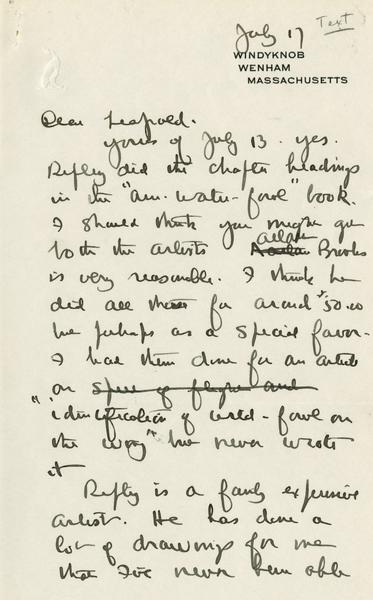 Text
July 17
WINDYKNOB
WENHAM
MASSACHUSETTS
Dear Leopold.
Yours of July 13. yes.
Ripley did the chapter headings
in the "Am. Water-fowl" book.
I should think you might get
both the artists
Allan Brooks
is very reasonable. I think he
did all these for around $50.00
but perhaps as a special favor-
I had them done for an article
on speed of flight and
"identification of wild-fowl on
the wing" but never wrote
it
Ripley is a fairly expensive
artist. He has done a
lot of drawings for me
that I've never been able